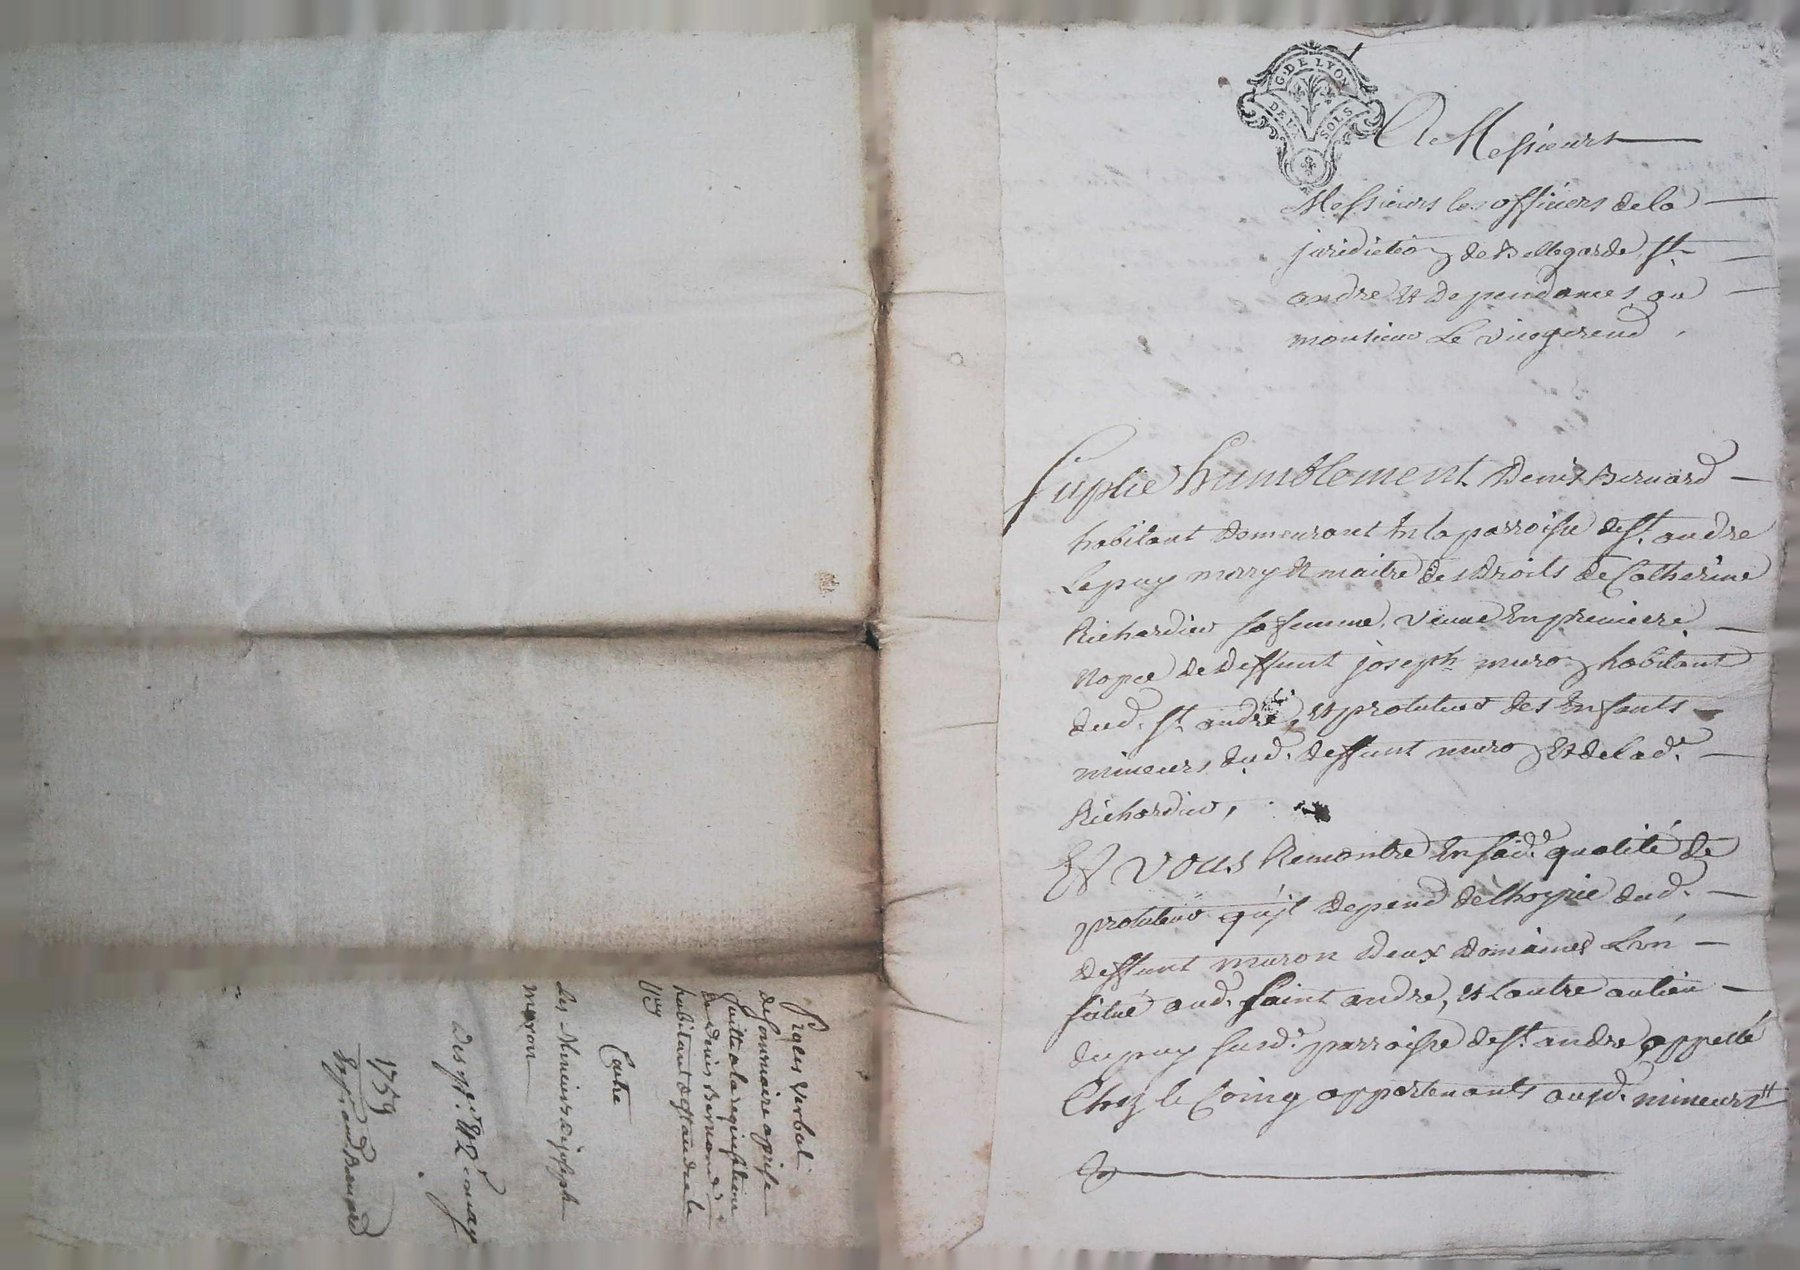 Proces Verbal
de sommaire aprise
faitte a la requisition
de Denis Bernard
habitant de St andre le
puy
Contre
Les Mineurs de joseph
muron
may
1759
G. DE LYON
DEUX SOLS
A Messieurs
Messieurs les officiers de la
juridiction de Bellegarde St
andre Et Dependances ou
monsieur Le vicegerend
Suplie humblement Denis Bernard
habitant Demeurant En la parroisse de St. andre
Le puy mary Et maitre des Droits de Catherine
Richardier sa femme, veuve En premiere
Nopce de Deffunt joseph muron habitant
dud. St. andre, Et protuteur des Enfants
mineurs dud. deffunt muron Et de lade.
Richardier,
Et vous Remontre En sade. qualité de
protuteur qu'jl Depend de lhoyrie dud.
deffunt muron Deux Domaines L'un
situé aud. Saint andre, Et l'autre au lieu
du puy susd. parroisse de St. andre appellé
Chez le Coing appartenants ausd. mineurs